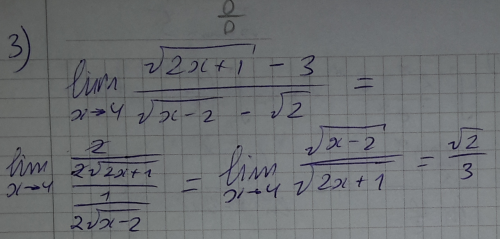 0/0
3)
lim x→4 (√(2x+1) - 3)/(√(x-2) - √2) =
lim x→4 (2/(2√(2x+1)))/(1/(2√(x-2))) = lim x→4 √(x-2)/√(2x+1) = √2/3